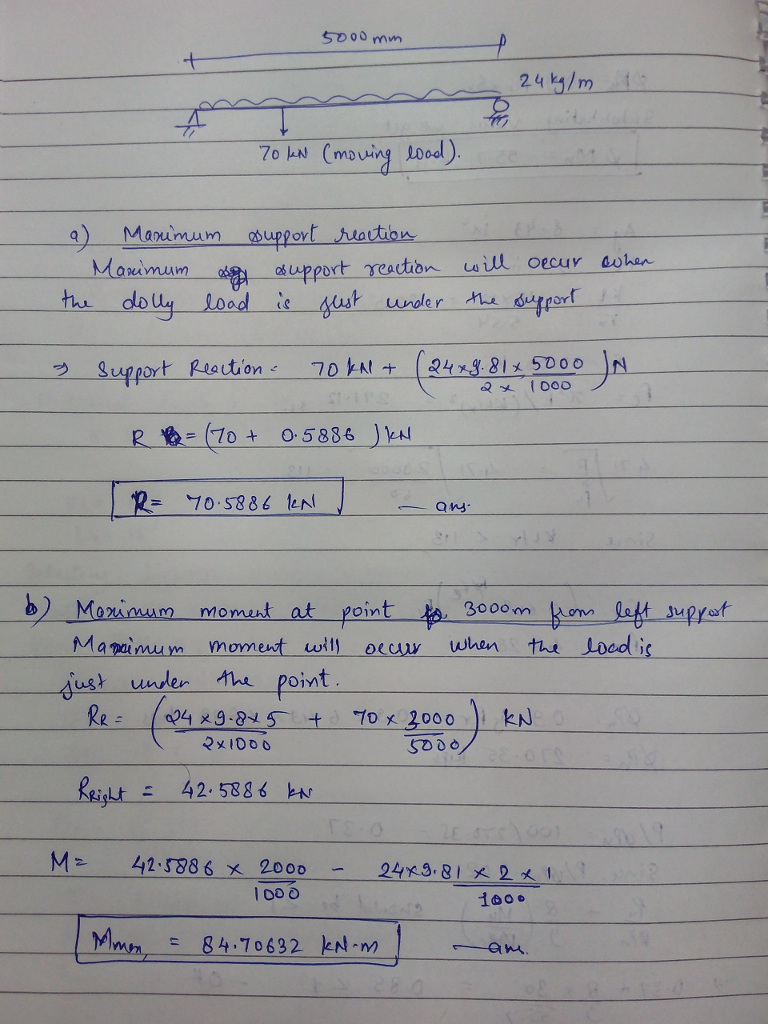 5000 mm
24 kg/m
70 kN (moving load).
a) Maximum support reaction
Maximum support reaction will occur when
the dolly load is just under the support
⇒ Support Reaction = 70 kN + (24×9.81×5000 / 2×1000) N
R = (70 + 0.5886) kN
R = 70.5886 kN — ans.
b) Maximum moment at point 3000m from left support
Maximum moment will occur when the load is
just under the point.
RR = (24×9.8×5 / 2×1000 + 70×3000 / 5000) kN
Rright = 42.5886 kN
M = 42.5886 × 2000 / 1000 − 24×9.81×2×1 / 1000
Mmax, = 84.70632 kN-m — ans.